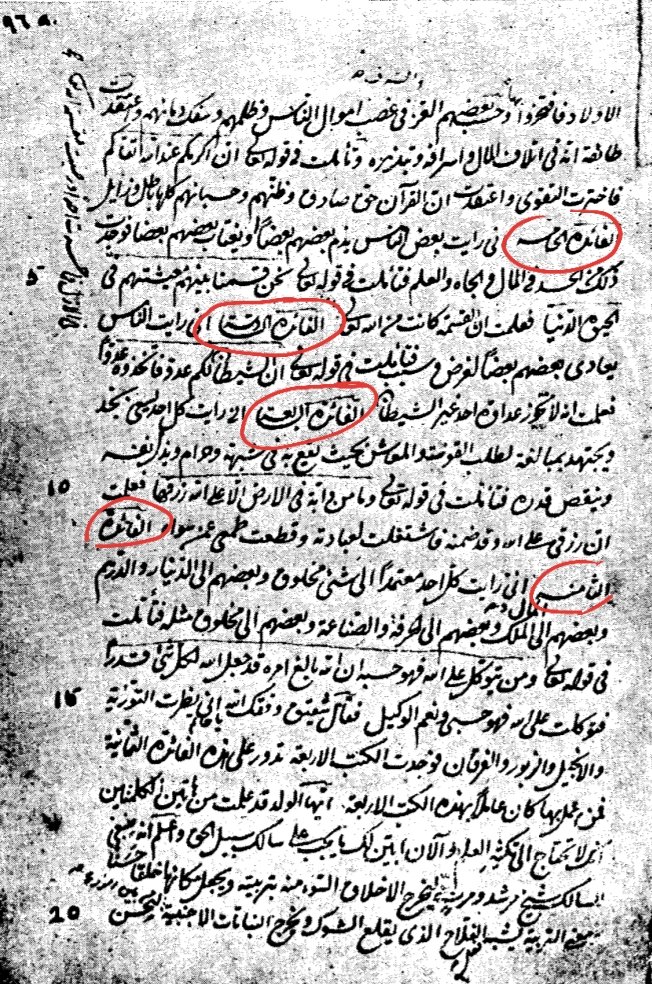 ٩٦ a.
الاولاد فافتخروا بها وحسب بعضهم العز فى غصب اموال الناس وظلمهم وسفك دمائهم واعتقدت
طائفة انه فى اتلاف المال واسرافه وتبذيره وتأملت فى قوله تعالى ان اكرمكم عند الله اتقاكم
فاخترت التقوى واعتقدت ان القرآن حق صادق وظنهم وحسبانهم كلها باطل زايل
الفائدة الخامسة انى رايت بعض الناس يذم بعضهم بعضا ويغتاب بعضهم بعضا فوجدت
5 ذلك من الحسد فى المال والجاه والعلم فتأملت فى قوله تعالى نحن قسمنا بينهم معيشتهم فى
الحيوة الدنيا فعلمت ان القسمة كانت من الله تعالى الفائدة السادسة انى رايت الناس
يعادى بعضهم بعضا لغرض وسبب فتأملت فى قوله تعالى ان الشيطان لكم عدو فاتخذوه عدوا
فعلمت انه لا تجوز عداوة احد غير الشيطان الفائدة السابعة انى رايت كل احد يسعى بجد
ويجتهد بمبالغة لطلب القوت والمعاش بحيث يقع به فى شبهة وحرام ويذل نفسه
10 وينقص قدره فتأملت فى قوله تعالى وما من دابة فى الارض الا على الله رزقها فعلمت
ان رزقى على الله وقد ضمنه فاشتغلت لعبادته وقطعت طمعى عمن سواه الفائدة
الثامنة انى رايت كل احد معتمدا الى شئ مخلوق وبعضهم الى الدينار والدرهم
وبعضهم الى المال والملك وبعضهم الى الحرفة والصناعة وبعضهم الى مخلوق مثله فتأملت
فى قوله تعالى ومن يتوكل على الله فهو حسبه ان الله بالغ امره قد جعل الله لكل شئ قدرا
15 فتوكلت على الله فهو حسبى ونعم الوكيل فقال شقيق وفقك الله يا حاتم انى نظرت التورية
والانجيل والزبور والفرقان فوجدت الكتب الاربعة تدور على هذه الفائدة الثمانية
فمن عمل بها كان عاملا بهذه الكتب الاربعة ايها الولد قد علمت من هاتين الحكايتين
انك لا تحتاج الى تكثير العلم والآن ابين لك ما يجب على سالك سبيل الحق واعلم انه ينبغى
للسالك شيخ مرشد ومربى ليخرج الاخلاق السوء منه بتربيته ويجعل مكانها خلقا حسنا
20 ومعنى التربية يشبه الفلاح الذى يقلع الشوك ويخرج النباتات الاجنبية من الزرع ليحسن